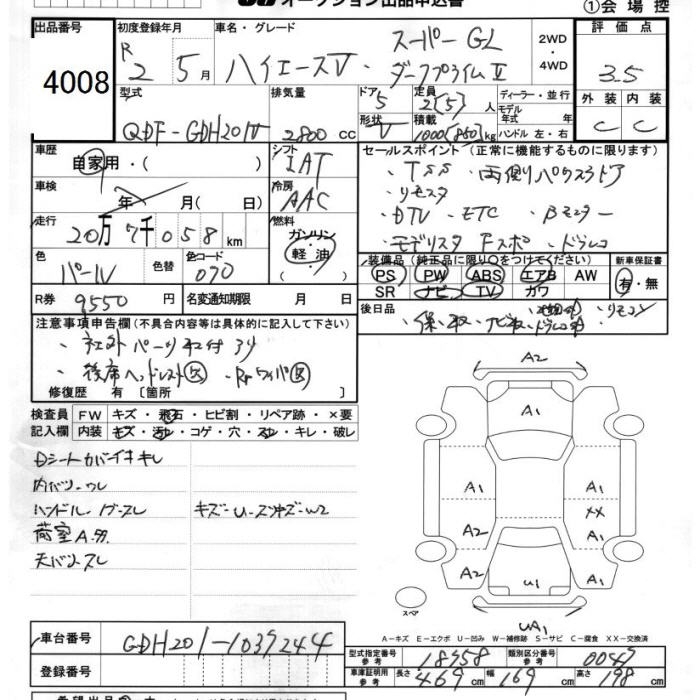 オークション出品申込書 ①会場控
出品番号 初度登録年月 車名・グレード 評価点
4008 R 2 5月 ハイエースV・ スーパーGL ダークプライムⅡ 2WD・4WD 3.5
型式 排気量 ドア 5 定員 2(5)人 ディーラー・並行 外装 内装
QDF-GDH201V 2800cc 形状 V 積載 1000(850)kg モデル年式 年 ハンドル 左・右 C C
車歴 自家用・( ) シフト IAT セールスポイント (正常に機能するものに限ります)
車検 年 月( 日) 冷房 AAC ・TSS ・両側パワスラドア
・リモスタ
走行 20万7千058km 燃料 ガソリン・軽油 ・DTV ・ETC ・Bモニター
・モデリスタFスポ ・ドラレコ
色 パール 色替 色コード 070 装備品 (純正品に限り○をつけてください) 新車保証書
PS PW ABS エアB AW 有・無
SR ナビ TV カワ
R券 9550円 名変通知期限 月 日 後日品
・保、取、ナビ取、 ・リモコン
注意事項申告欄 (不具合内容等は具体的に記入して下さい)
・社外パーツ取付あり
・後席ヘッドレスト欠 ・Rrワイパ欠
修復歴 有 [箇所 ]
検査員記入欄 FW キズ・飛石・ヒビ割・リペア跡・×要
内装 キズ・汚レ・コゲ・穴・スレ・キレ・破レ
Dシートカバーイキキレ
内バリーウレ
ハンドル、ノブースレ キズーU-ズ沖ズーW2
荷室A.ガ
天バリースレ
A2
A1
A1 A1
XX
A2 A1
A2 U1 A1
スペア
UA1
A-キズ E-エクボ U-凹み W-補修跡 S-サビ C-腐食 XX-交換済
車台番号 GDH201-1039244
型式指定番号 参考 18958 類別区分番号 参考 0047
登録番号 車庫証明用 参考 長さ 469cm 幅 169cm 高さ 198cm